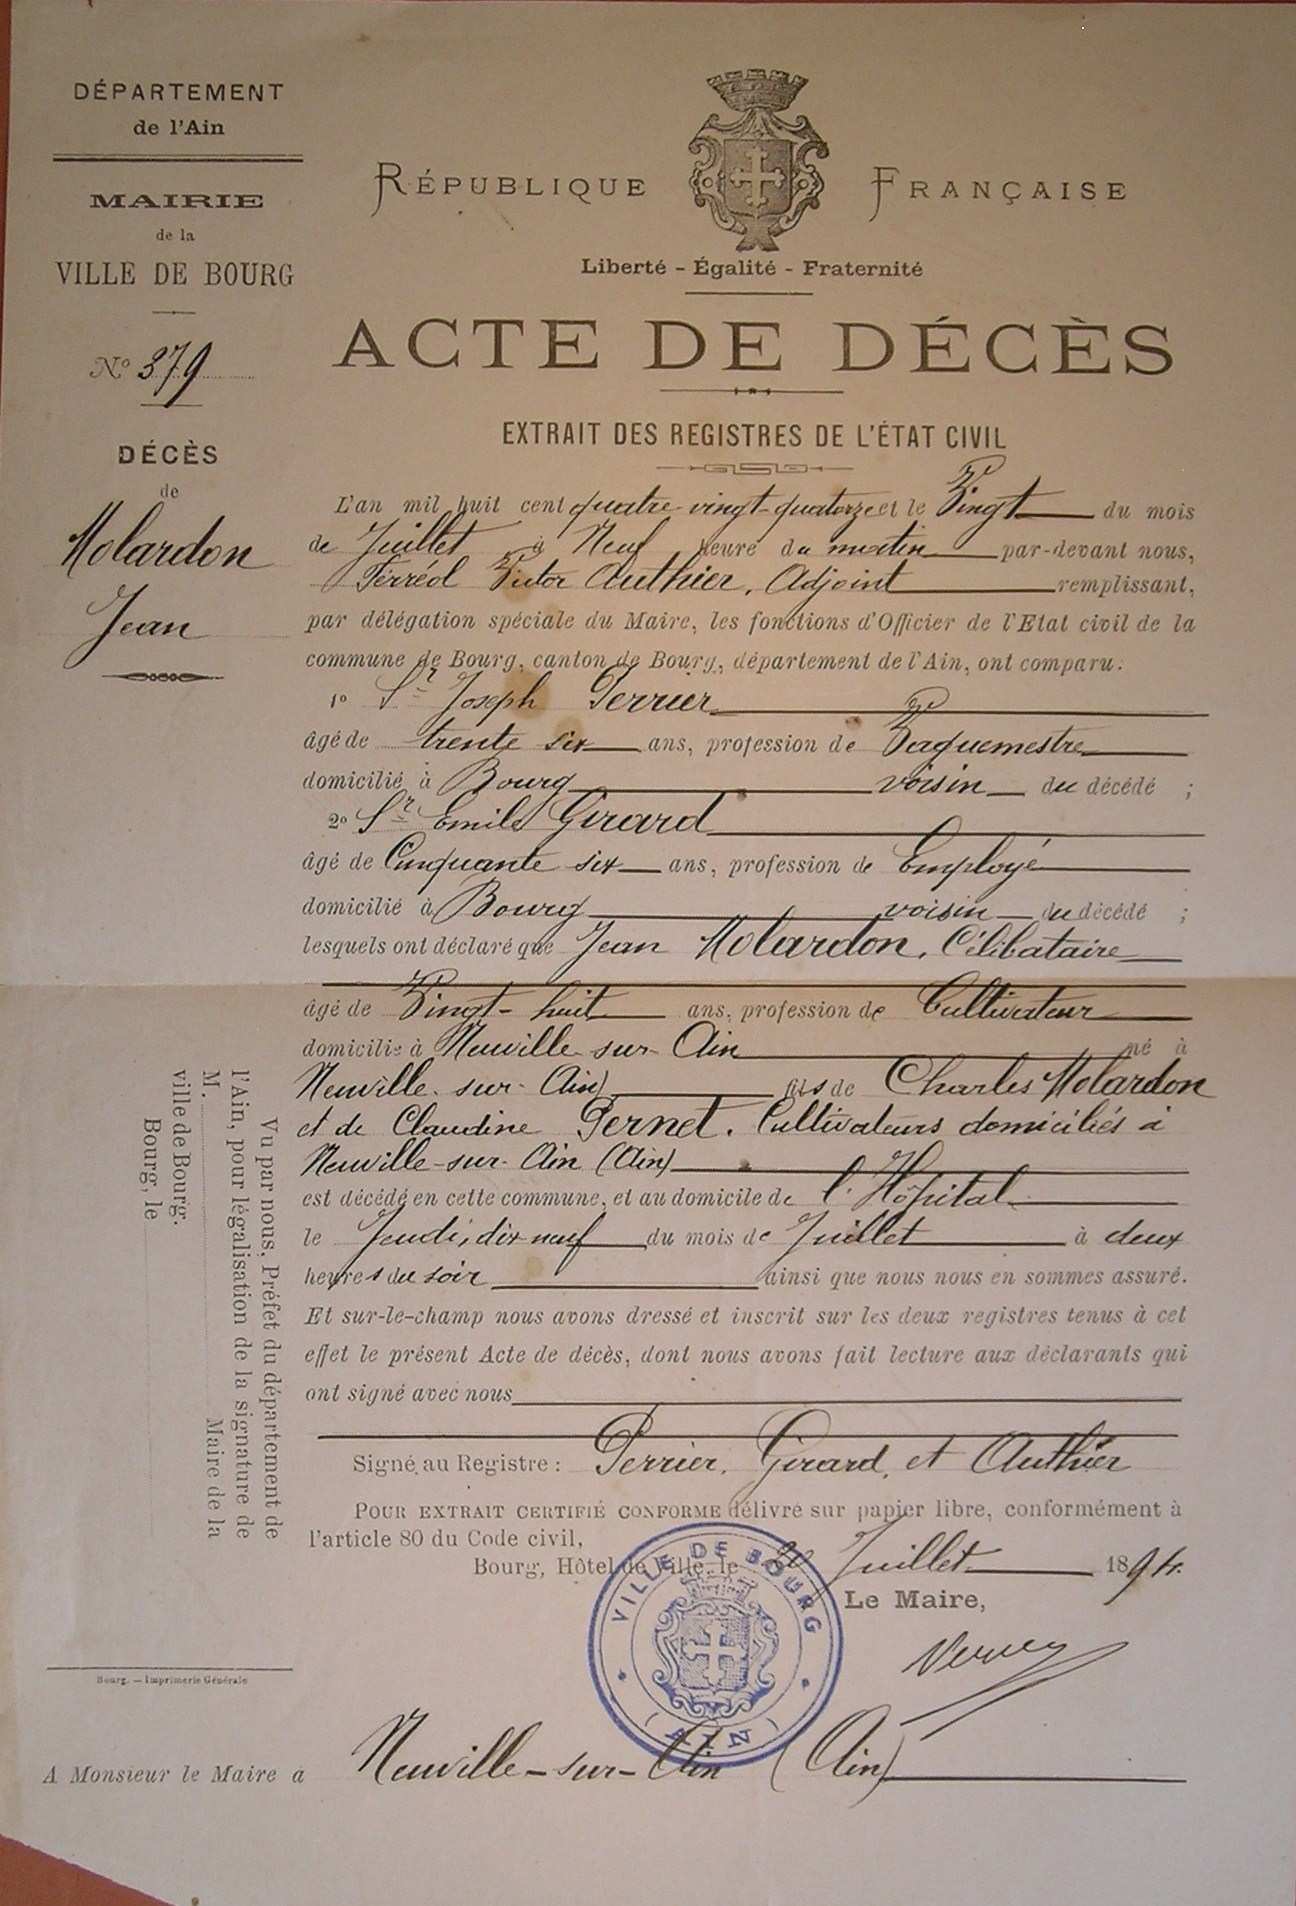 DÉPARTEMENT
de l'Ain
MAIRIE
de la
VILLE DE BOURG
N° 379
DÉCÈS
de
Molardon
Jean
RÉPUBLIQUE FRANÇAISE
Liberté - Égalité - Fraternité
ACTE DE DÉCÈS
EXTRAIT DES REGISTRES DE L'ÉTAT CIVIL
L'an mil huit cent quatre vingt-quatorze et le Vingt du mois
de Juillet à Neuf heure du matin par-devant nous,
Ferréol Victor Authier, Adjoint remplissant,
par délégation spéciale du Maire, les fonctions d'Officier de l'Etat civil de la
commune de Bourg, canton de Bourg, département de l'Ain, ont comparu:
1° Sr Joseph Perrier
âgé de trente six ans, profession de Vaguemestre
domicilié à Bourg voisin du décédé ;
2° Sr Emile Girard
âgé de Cinquante six ans, profession de Employé
domicilié à Bourg voisin du décédé ;
lesquels ont déclaré que Jean Molardon, Célibataire
âgé de Vingt-huit ans, profession de Cultivateur
domicilié à Neuville sur Ain né à
Neuville-sur-Ain fils de Charles Molardon
et de Claudine Pernet. Cultivateurs domiciliés à
Neuville-sur-Ain (Ain)
est décédé en cette commune, et au domicile de l'Hôpital
le Jeudi, dix neuf du mois de Juillet à deux
heures du soir ainsi que nous nous en sommes assuré.
Et sur-le-champ nous avons dressé et inscrit sur les deux registres tenus à cet
effet le présent Acte de décès, dont nous avons fait lecture aux déclarants qui
ont signé avec nous
Signé au Registre : Perrier, Girard, et Authier
POUR EXTRAIT CERTIFIÉ CONFORME délivré sur papier libre, conformément à
l'article 80 du Code civil,
Bourg, Hôtel de Ville, le 20 Juillet 1894.
Le Maire,
VILLE DE BOURG
(AIN)
Vu par nous, Préfet du département de
l'Ain, pour légalisation de la signature de
M. Maire de la
ville de Bourg.
Bourg, le
Bourg. — Imprimerie Générale
A Monsieur le Maire à Neuville-sur-Ain (Ain)